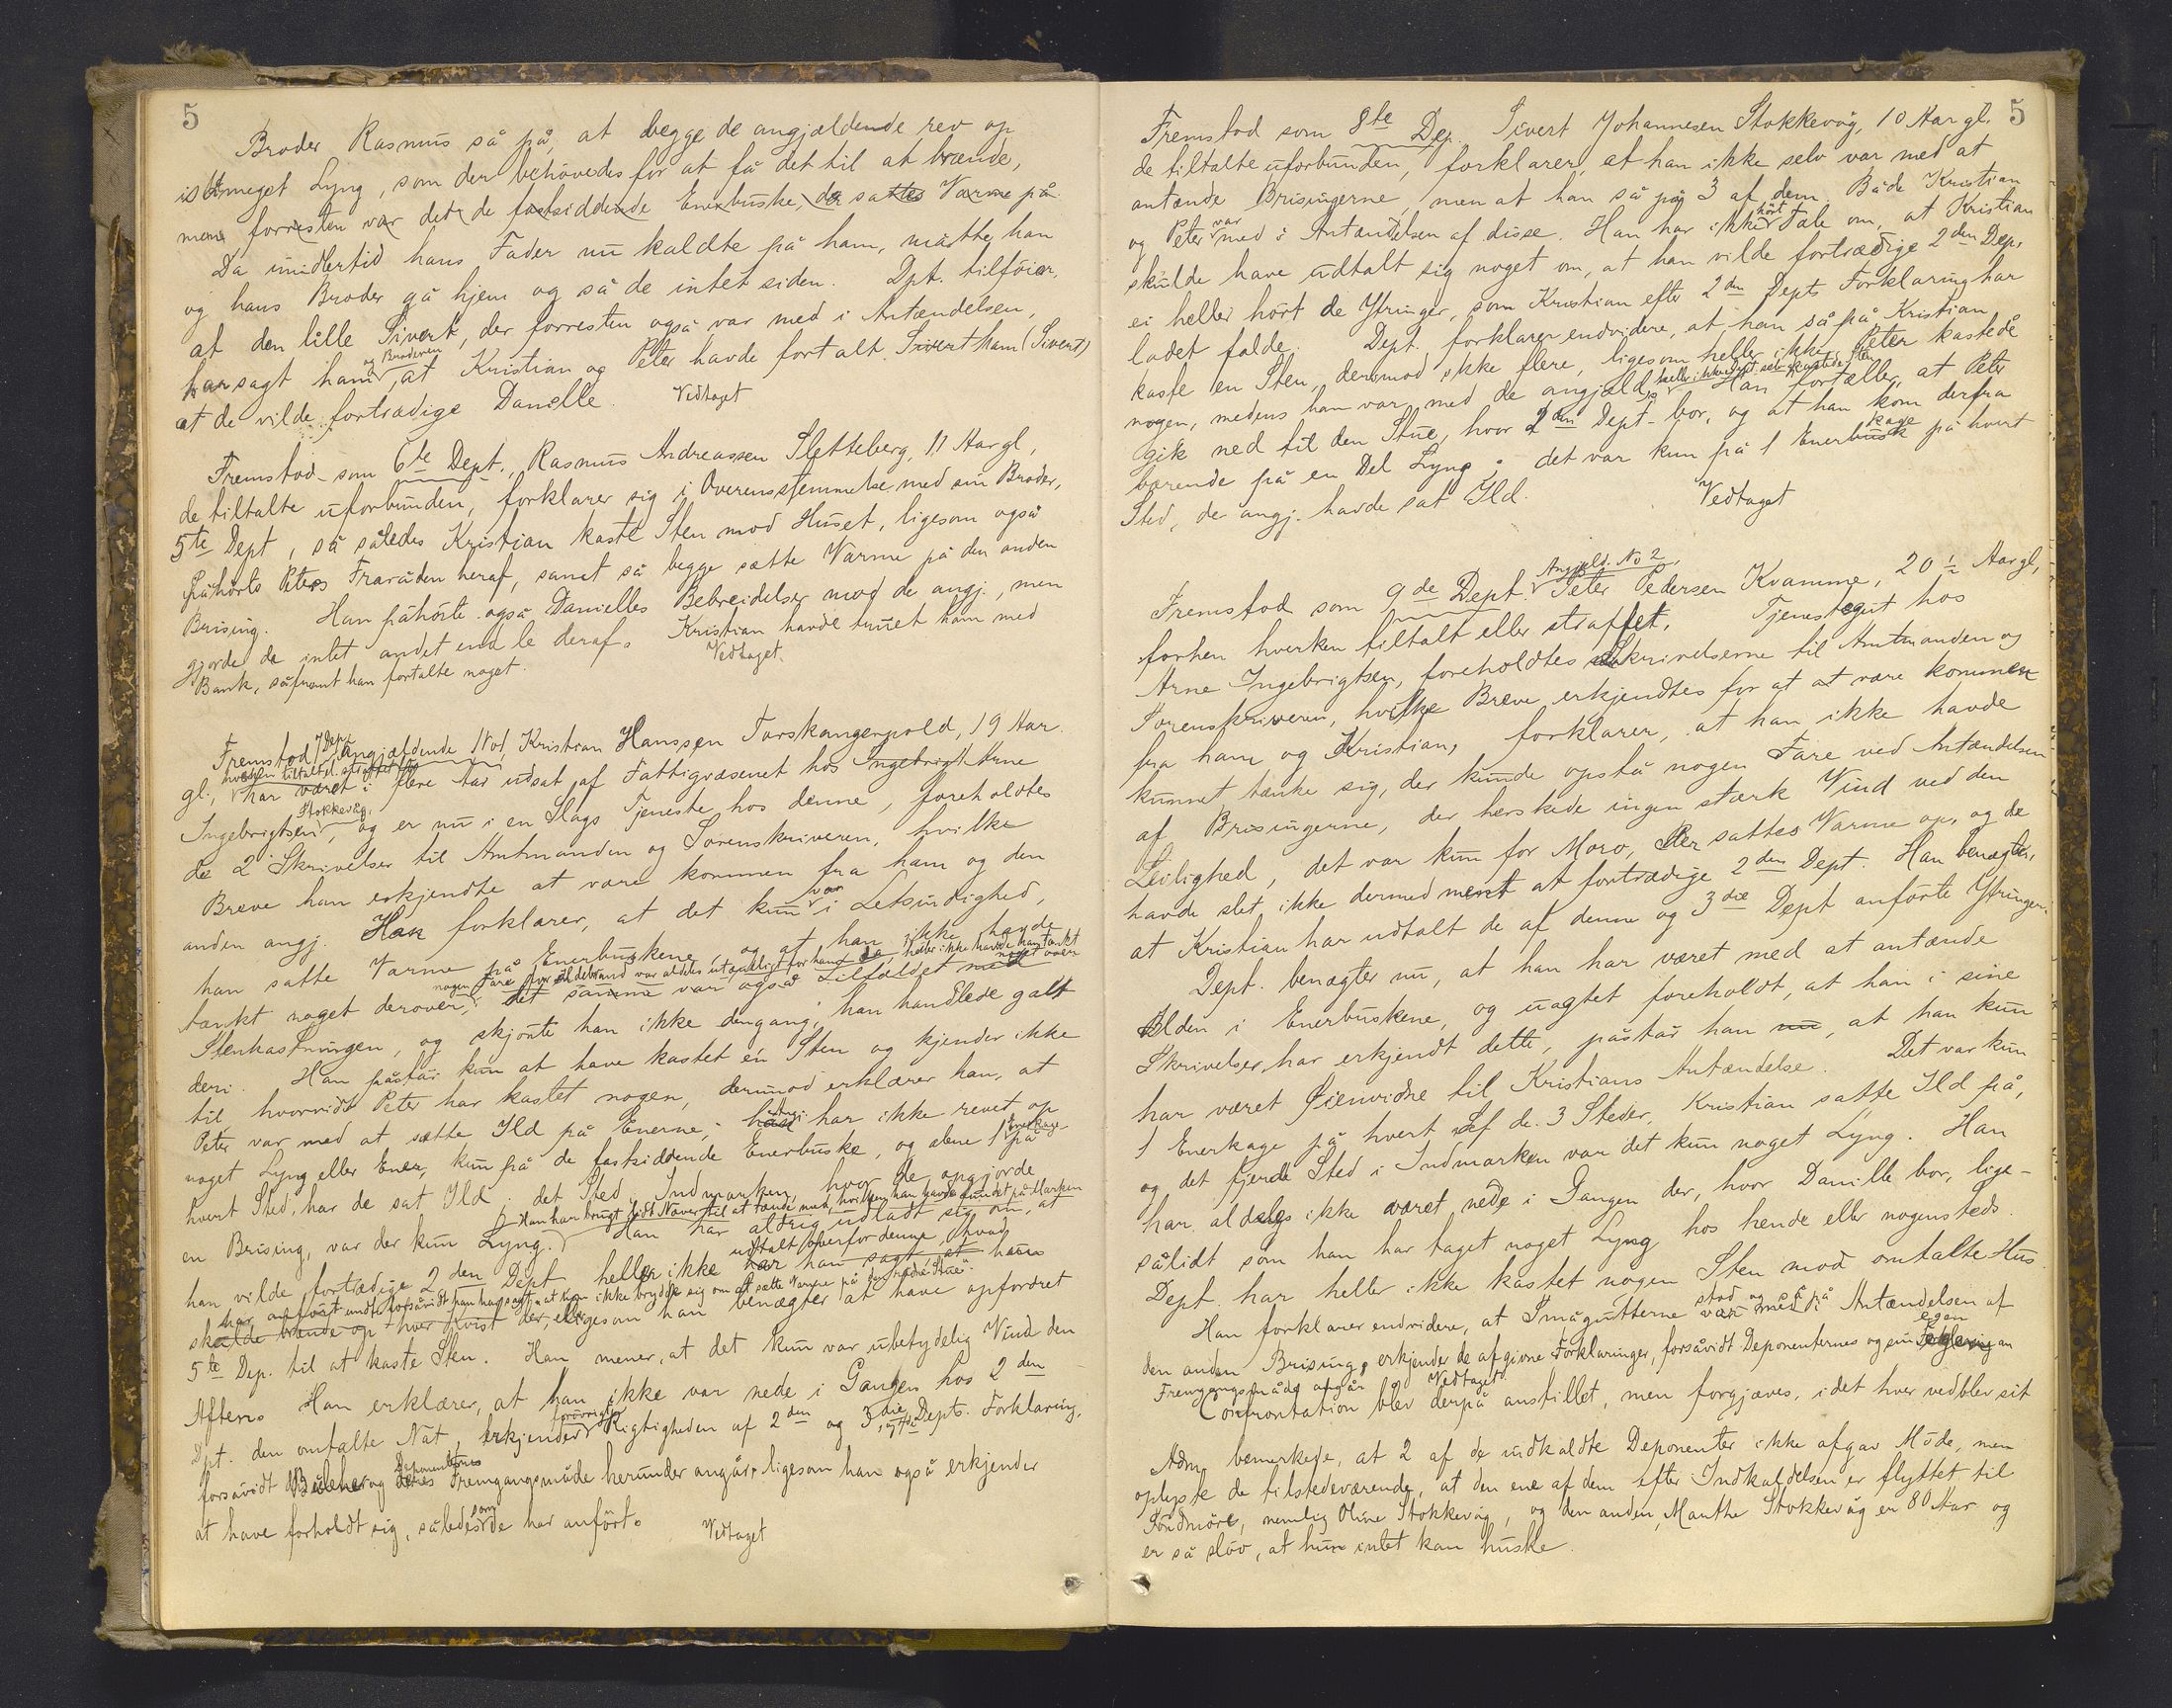 5
Broder Rasmus så på, at begge de angjældende rev op
så meget Lyng, som der behövedes for at få det til at brænde,
men forresten var det de fastsiddende Enerbuske, der sattes Varme på.
Da imidlertid hans Fader nu kaldte på ham, måtte han
og hans Broder gå hjem og så de intet siden. Dpt. tilföier,
at den lille Sivert, der forresten også var med i Antændelsen,
har sagt ham og Broderen, at Kristian og Peter havde fortalt Sivert ham (Sivert)
at de vilde fortrædige Danielle. Vedtaget
Fremstod som 6te Dept., Rasmus Andreassen Sletteberg, 11 Aar gl,
de tiltalte uforbunden, forklarer sig i Overensstemmelse med sin Broder,
5te Dept, så således Kristian kaste Sten mod Huset, ligesom også
påhörte Peters Fraråden heraf, samt så begge sætte Varme på den anden
Brising. Han påhörte også Danielles Bebreidelser mod de angj., men
gjorde de intet andet end le deraf. Kristian havde truet ham med
Bank, såfremt han fortalte noget. Vedtaget.
Fremstod 7 Dept angjældende No 1, Kristian Hanssen Torskangerpold, 19 Aar
gl., hverken tiltalt el. straffet för har været i flere Aar udsat af Fattigvæsenet hos Ingebrigt Arne
Ingebrigtsen Stokkevåg, og er nu i en Slags Tjeneste hos denne, foreholdtes
de 2 Skrivelser til Amtmanden og Sorenskriveren, hvilke
Breve han erkjendte at være kommen fra ham og den
anden angj. Han forklarer, at det kun var i Letsindighed,
han satte Varme på Enerbuskene, og at han ikke havde
tænkt noget derover; nogen Fare for Ildebrand var aldeles utænkelig for ham da, heller ikke havde han tænkt noget over
det samme var også Tilfældet med
Stenkastningen, og skjönte han ikke dengang, han handlede galt
deri. Han påstår kun at have kastet én Sten og kjender ikke
til, hvorvidt Peter har kastet nogen, derimod erklærer han, at
Peter var med at sætte Ild på Enerne; han Angj. har ikke revet op
noget Lyng eller Ener, kun på de fastsiddende Enerbuske, og alene 1 Enerkage på
hvert Sted, har de sat Ild; det Sted i Indmarken, hvor de opgjorde
en Brising, var der kun Lyng. Han har brugt lidt Næver til at tænde med, hvilken han havde fundet på Marken
Han har aldrig udladt sig om, at
han vilde fortrædige 2den Dept heller ikke har han sagt, at han udtalt overfor denne, hvad
har anfört undt. forsåvidt han har sagt, at han ikke brydde sig om at sætte Varme på den nedre Stue
skulde brænde op hver Kvist der, ligesom han benægter at have opfordret
5te Dep. til at kaste Sten. Han mener, at det kun var ubetydelig Vind den
Aften. Han erklærer, at han ikke var nede i Gangen hos 2den
Dpt. den omtalte Nat, erkjender forövrigt Rigtigheden af 2den og 3die, 4de Depts. Forklaring,
forsåvidt Bulener og deres Deponenternes Fremgangsmåde herunder angår, ligesom han også erkjender
at have forholdt sig, således som de har anfört. Vedtaget
5
Fremstod som 8te Dep. Sivert Johannesen Stokkevåg, 10 Aar gl.
de tiltalte uforbunden, forklarer, at han ikke selv var med at
antænde Brisingerne, men at han så på 3 af dem. Både Kristian
og Peter var med i Antændelsen af disse. Han har ikke hört Tale om, at Kristian
skulde have udtalt sig noget om, at han vilde fortrædige 2den Dep.,
ei heller hört de Ytringer, som Kristian efter 2den Depts Forklaring har
ladet falde. Dept. forklarer endvidere, at han så på Kristian
kaste en Sten, derimod ikke flere, ligesom heller ikke Peter kastede
nogen, medens han var med de angjæld., heller ikke har Dept. selv kastet Sten. Han fortæller, at Peter
gik ned til den Stue, hvor 2den Dept. bor, og at han kom derfra
bærende på en Del Lyng; det var kun på 1 Enerbusk kage på hvert
Sted, de angj. havde sat Ild. Vedtaget
Fremstod som 9de Dept. Angjæld. No 2, Peter Pedersen Kvamme, 20 ½ Aar gl,
forhen hverken tiltalt eller straffet, Tjenestegut hos
Arne Ingebrigtsen, foreholdtes Skrivelserne til Amtmanden og
Sorenskriveren, hvilke Breve erkjendtes for at at være kommen
fra ham og Kristian, forklarer, at han ikke havde
kunnet tænke sig, der kunde opstå nogen Fare ved Antændelsen
af Brisingerne, der herskede ingen stærk Vind ved den
Leilighed, det var kun for Moro, der sattes Varme op, og de
havde slet ikke dermed ment at fortrædige 2den Dept. Han benægter,
at Kristian har udtalt de af denne og 3die Dept anförte Ytringer.
Dept. benægter nu, at han har været med at antænde
Ilden i Enerbuskene, og uagtet foreholdt, at han i sine
Skrivelser har erkjendt dette, påstår han nu, at han kun
har været Öienvidne til Kristians Antændelse. Det var kun
1 Enerkage på hvert af de 3 Steder, Kristian satte Ild på,
og det fjerde Sted i Indmarken var det kun noget Lyng. Han
har aldeles ikke været nede i Gangen der, hvor Danielle bor, lige-
sålidt som han har taget noget Lyng hos hende eller nogensteds.
Dept. har heller ikke kastet nogen Sten mod omtalte Hus.
Han forklarer endvidere, at Smågutterne var med i stod og så på Antændelsen af
den anden Brising, erkjender de afgivne Forklaringer, forsåvidt Deponenternes og sin egen
Fremgangsmåde angår. Vedtaget.
Confrontation blev derpå anstillet, men forgjæves, idet hver vedblev sit
Adm. bemerkede, at 2 af de indkaldte Deponenter ikke afgav Möde, men
oplyste de tilstedeværende, at den ene af dem efter Indkaldelsen er flyttet til
Söndmöre, nemlig Oline Stokkevåg, og den anden, Marthe Stokkevåg er 80 Aar og
er så slöv, at hun intet kan huske.